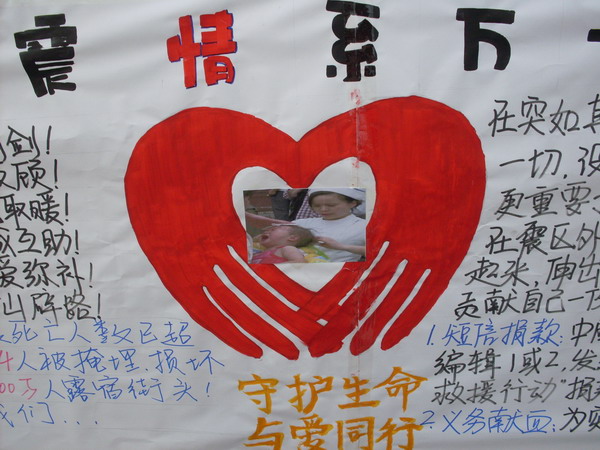 震情系万
剑！
顾！
取暖！
互助！
爱弥补！
出解路！
死亡人数已超
4人被掩埋.损坏
00万人露宿街头！
我们...
守护生命
与爱同行
在突如其
一切，没
更重要
在震区外
起来，伸出
贡献自己一
1.短信捐款：中
编辑1或2，发
救援行动"捐
2.义务献血：为